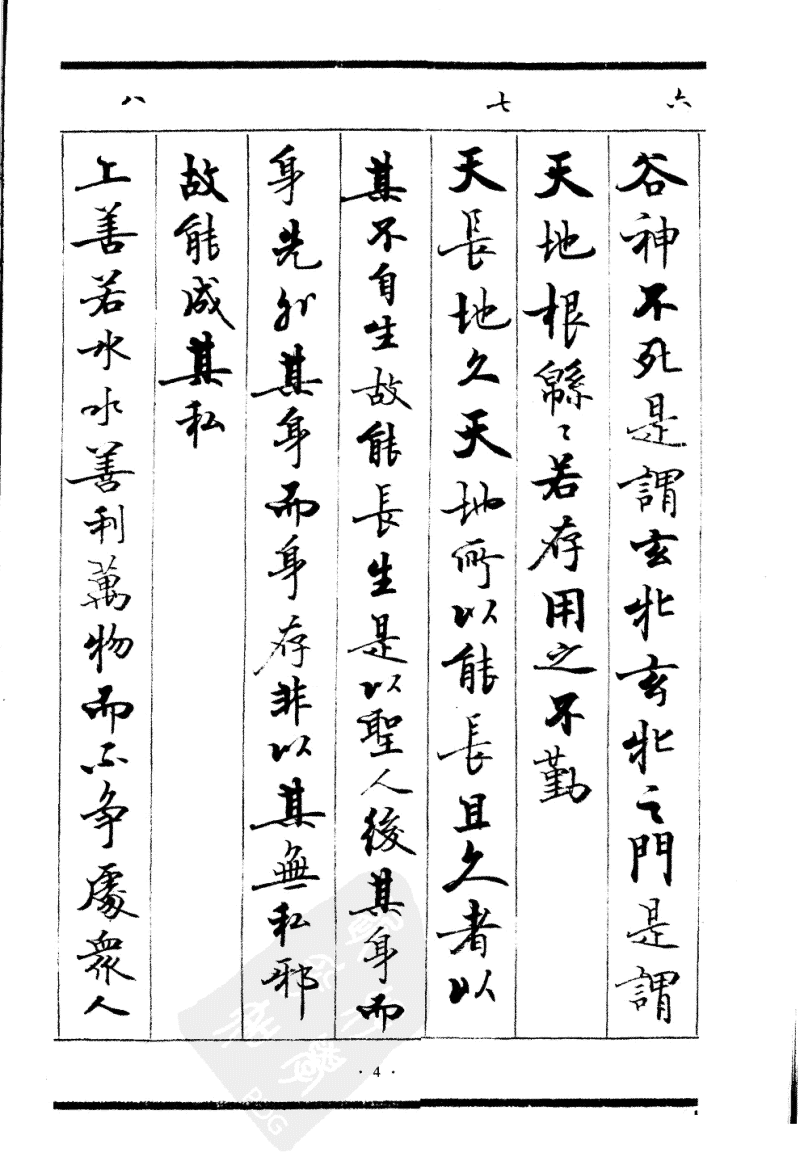 六
谷神不死是謂玄牝玄牝之門是謂
天地根緜〻若存用之不勤
七
天長地久天地所以能長且久者以
其不自生故能長生是以聖人後其身而
身先外其身而身存非以其無私邪
故能成其私
八
上善若水水善利萬物而不争處衆人
· 4 ·
PDG